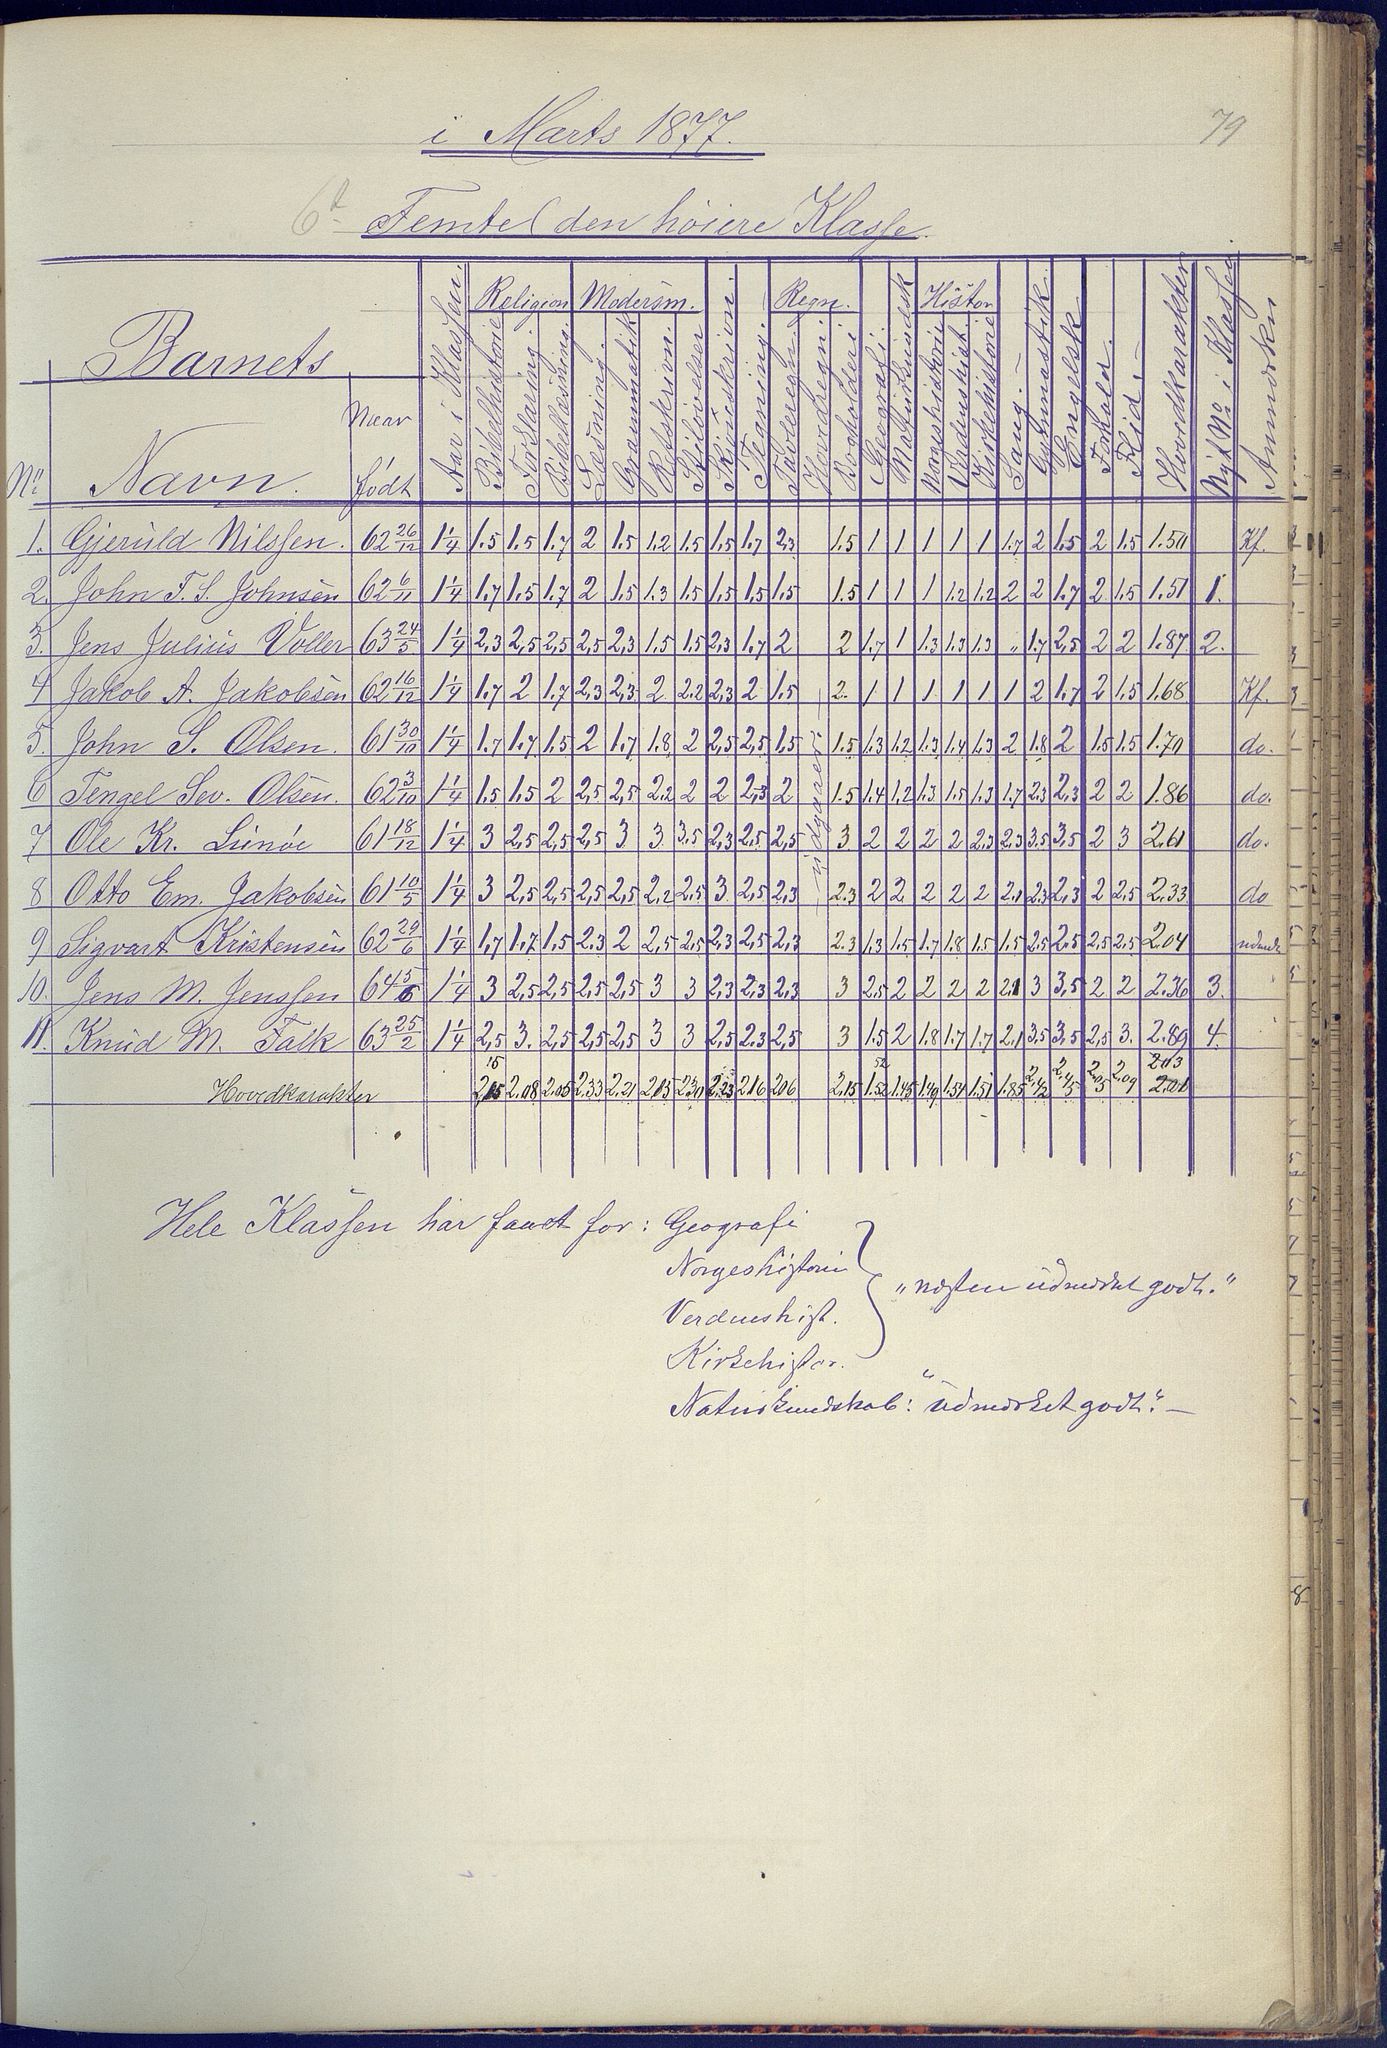 79
i Marts 1877.
6t Femte (den höiere Klasse.
Barnets
No Navn. Naar født Aar i Klassen. Religion Bibelhistorie Forklaring Bibellæsning. Modersm. Læsning. Grammatik Retskrivn. Stiløvelser Skjönskrivn. Tegning. Regn. Tavleregn. Hovedregn. Bogholderi Geografi. Naturkundsk Histor Norgeshistorie Verdenshist. Kirkehistorie Sang. Gymnastik. Engelsk Forhold. Flid. Hovedkarakter Nyt No i Klassen Anmærkn
1. Gjeruld Nilssen. 62 26/12 1 1/4 1.5 1.5 1.7 2 1.5 1.2 1.5 1.5 1.7 2,3 1.5 1 1 1 1 1 1.7 2 1.5 2 1.5 1.50 Kf.
2. John F. S. Johnsen 62 6/11 1 1/4 1.7 1.5 1.7 2 1.5 1.3 1.5 1.5 1.5 1.5 1.5 1 1 1 1.2 1.2 2 2 1.7 2 1.5 1.51 1.
3. Jens Julius Voller 63 24/5 1 1/4 2,3 2,5 2,5 2,5 2,3 1.5 1.5 2,3 1.7 2 2 1.7 1 1.3 1.3 1.3 " 1.7 2,5 2 2 1.87 2.
4 Jakob A. Jakobsen 62 16/12 1 1/4 1.7 2 1.7 2,3 2,3 2 2.2 2,3 2 1.5 2. 1 1 1 1 1 1 2 1.7 2 1.5 1.68 Kf.
5. John S. Olsen. 61 30/10 1 1/4 1.7 1.7 1.5 2 1.7 1.8 2 2,5 2,5 1.5 1.5 1.3 1.2 1.3 1.4 1.3 2 1.8 2 1.5 1.5 1.70 do.
6 Tengel Sev. Olsen. 62 3/10 1 1/4 1.5 1.5 2 2,5 2,5 2.2 2 2 2,3 2 1.5 1.4 1.2 1.3 1.5 1.3 1.7 2.3 2,3 2 2 1.86 do.
7 Ole Kr. Lunöe 61 18/12 1 1/4 3 2,5 2,5 2,5 3 3 3,5 2,3 2,5 2,5 3 2 2 2 2 2.3 2.3 3.5 3,5 2 3 2.61 do.
8 Otto Em. Jakobsen 61 10/5 1 1/4 3 2,5 2,5 2,5 2,5 2,2 2,5 3 2,5 2,3 2.3 2 2 2 2 2 2.1 2.3 2,3 2 2,5 2.33 do
9 Sigvart Kristensen 62 29/6 1 1/4 1,7 1.7 1.5 2.3 2 2,5 2,5 2,3 2,5 2,3 2.3 1.3 1.5 1.7 1.8 1.5 1.5 2.5 2.5 2,5 2,5 2.04
10. Jens M. Jenssen 64 5/6 1 1/4 3 2,5 2,5 2,5 2,5 3 3 2,3 2,3 2,3 3 2,5 2 2 2 2 2.1 3 3,5 2 2 2.36 3.
11. Knud M. Falk 63 25/2 1 1/4 2,5 3. 2,5 2,5 2,5 3 3 2,5 2.3 2,5 3 1.5 2 1.8 1.7 1.7 2.1 3.5 3,5 2,5 3. 2.89 4.
udgaaer.
15 52 2.03
Hovedkarakter 2,15 2.08 2.05 2.33 2.21 2.13 2.30 2.23 2.16 2.06 2.15 1.52 1.45 1.49 1.54 1.51 1.85 2.42 2.45 2.05 2.09 2.00
Hele Klassen har faaet for: Geografi
Norgeshistorie
"næsten udmerket godt."
Verdenshist.
Kirkehistor.
Naturkundskab: "udmerket godt." —
8